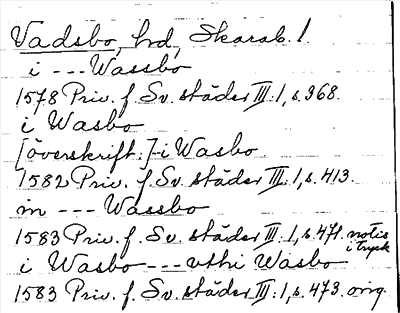 Vadsbo, hd, Skarab. l.
i --- Wassbo
1578 Priv. f. Sv. städer III:1, s. 368.
i Wasbo
[överskrift:] i Wasbo
1582 Priv. f. Sv. städer III:1, s. 413.
in --- Wassbo
1583 Priv. f. Sv. städer III:1, s. 471. notis i tryck
i Wasbo --- vthi Wasbo
1583 Priv. f. Sv. städer III:1, s. 473. orig.